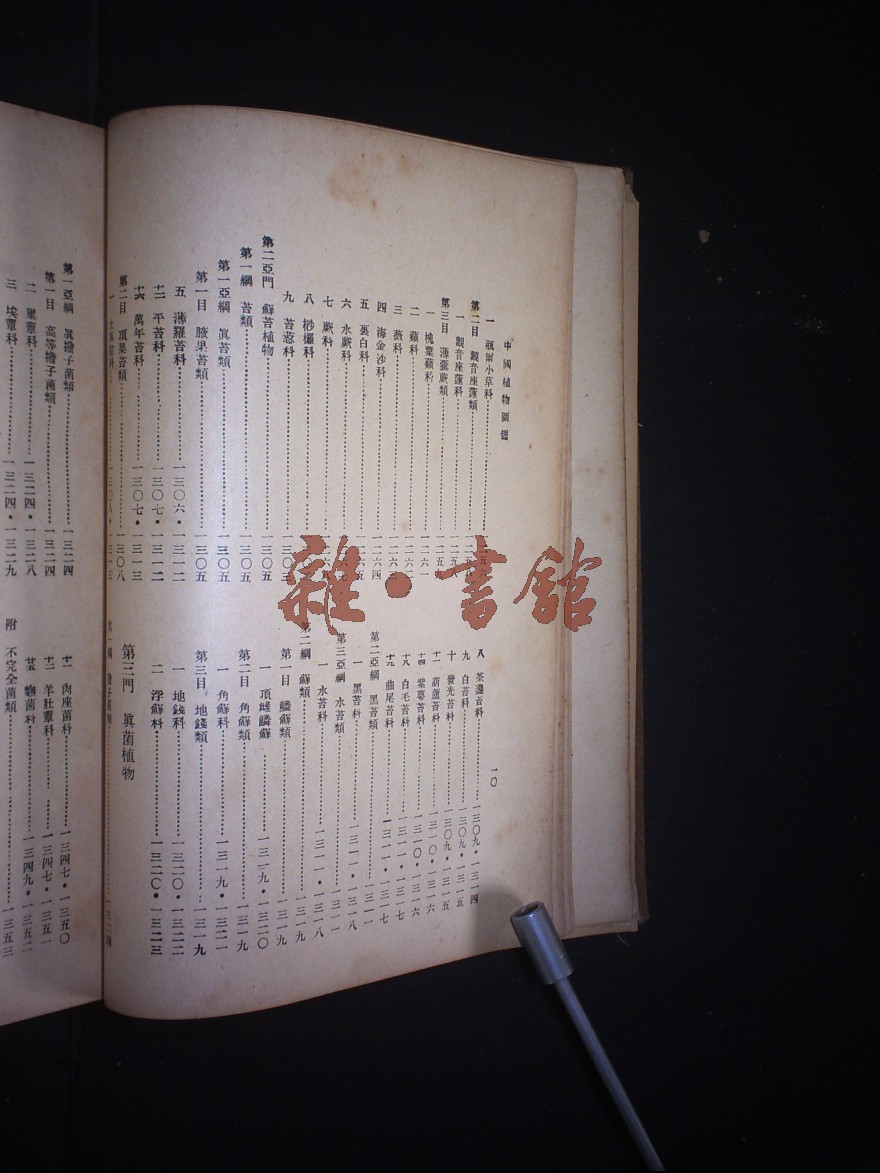 中國植物圖鑑
一〇
一 瓶爾小草科
第二目 觀音座蓮類
一 觀音座蓮科
第三目 薄囊蕨類
一 槐葉蘋科 一二六一
二 蘋科 一二六二
三 薇科
四 海金沙科 一二六四
五 裏白科
六 水蕨科
七 蕨科
八 桫欏科
九 苔葱科 一三〇三
第二亞門 蘚苔植物 一三〇五
第一綱 苔類 一三〇五
第一亞綱 眞苔類 一三〇五
第一目 腋果苔類 一三〇五
五 薄羅苔科 一三〇六・一三一二
十二 平苔科 一三〇七・一三一二
十六 萬年苔科 一三〇七・一三一三
第二目 頂果苔類 一三〇八
八 茶邊苔科 一三〇九・一三一四
九 白苔科 一三〇九・一三一五
十 發光苔科 一三〇九・一三一五
十二 葫蘆苔科 一三一〇・一三一六
十四 紫萼苔科 一三一〇・一三一六
十八 白毛苔科 一三一一・一三一七
十九 曲尾苔科 一三一一・一三一七
第二亞綱 黑苔類 一三一一
一 黑苔科 一三一一・一三一八
第三亞綱 水苔類 一三一一
一 水苔科 一三一一・一三一八
第二綱 蘚類 一三一九
第一目 鱗蘚類 一三一九
一 頂雌鱗蘚 一三一九・一三二〇
第二目 角蘚類 一三一九
一 角蘚科 一三一九・一三二一
第三目 地錢類 一三一九
一 地錢科 一三二〇・一三二二
二 浮蘚科 一三二〇・一三二三
第三門 眞菌植物
第一亞綱 眞擔子菌類 一三二四
第一目 高等擔子菌類 一三二四
二 蕈科 一三二四・一三二八
三 埃蕈科 一三二四・一三二九
十一 肉座菌科 一三四七・一三五〇
十二 羊肚蕈科 一三四七・一三五一
麴菌科 一三四九・一三五二
附 不完全菌類 一三五三
雜・書館